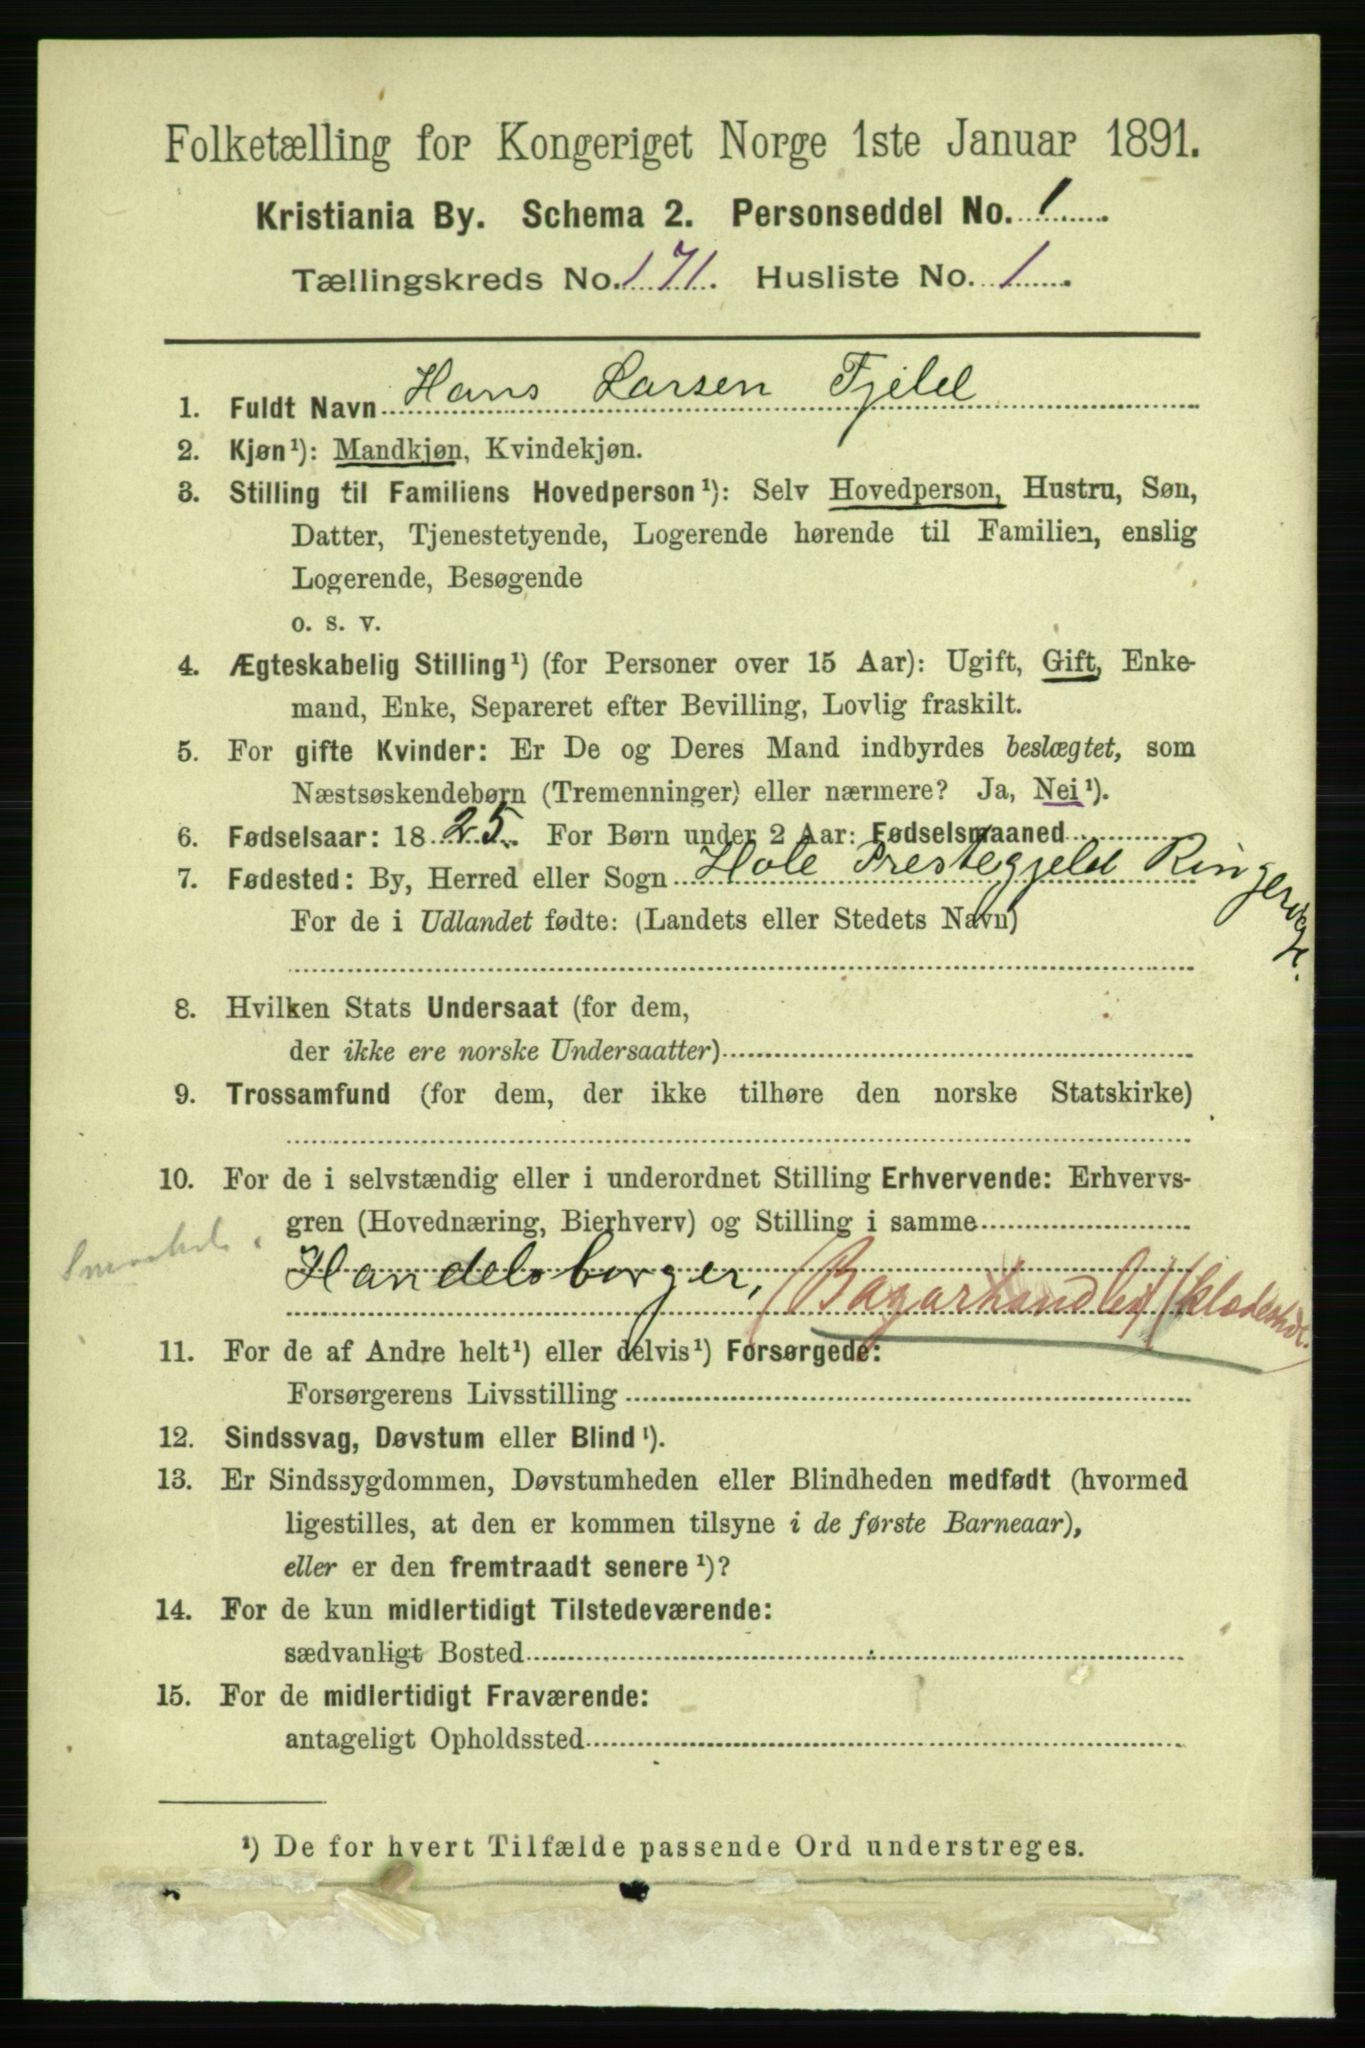 Folketælling for Kongeriget Norge 1ste Januar 1891.
Kristiania By. Schema 2. Personseddel No. 1.
Tællingskreds No. 171. Husliste No. 1.
1. Fuldt Navn Hans Larsen Fjeld
2. Kjøn¹): Mandkjøn, Kvindekjøn.
3. Stilling til Familiens Hovedperson¹): Selv Hovedperson, Hustru, Søn,
Datter, Tjenestetyende, Logerende hørende til Familien, enslig
Logerende, Besøgende
o. s. v.
4. Ægteskabelig Stilling¹) (for Personer over 15 Aar): Ugift, Gift, Enke-
mand, Enke, Separeret efter Bevilling, Lovlig fraskilt.
5. For gifte Kvinder: Er De og Deres Mand indbyrdes beslægtet, som
Næstsøskendebørn (Tremenninger) eller nærmere? Ja, Nei¹).
6. Fødselsaar: 1825. For Børn under 2 Aar: Fødselsmaaned
7. Fødested: By, Herred eller Sogn Hole Prestegjeld Ringerige.
For de i Udlandet fødte: (Landets eller Stedets Navn)
8. Hvilken Stats Undersaat (for dem,
der ikke ere norske Undersaatter)
9. Trossamfund (for dem, der ikke tilhøre den norske Statskirke)
10. For de i selvstændig eller i underordnet Stilling Erhvervende: Erhvervs-
gren (Hovednæring, Bierhverv) og Stilling i samme
Handelsborger, (Bazarhandler)
11. For de af Andre helt¹) eller delvis¹) Forsørgede:
Forsørgerens Livsstilling
12. Sindssvag, Døvstum eller Blind¹).
13. Er Sindssygdommen, Døvstumheden eller Blindheden medfødt (hvormed
ligestilles, at den er kommen tilsyne i de første Barneaar),
eller er den fremtraadt senere¹)?
14. For de kun midlertidigt Tilstedeværende:
sædvanligt Bosted
15. For de midlertidigt Fraværende:
antageligt Opholdssted
¹) De for hvert Tilfælde passende Ord understreges.